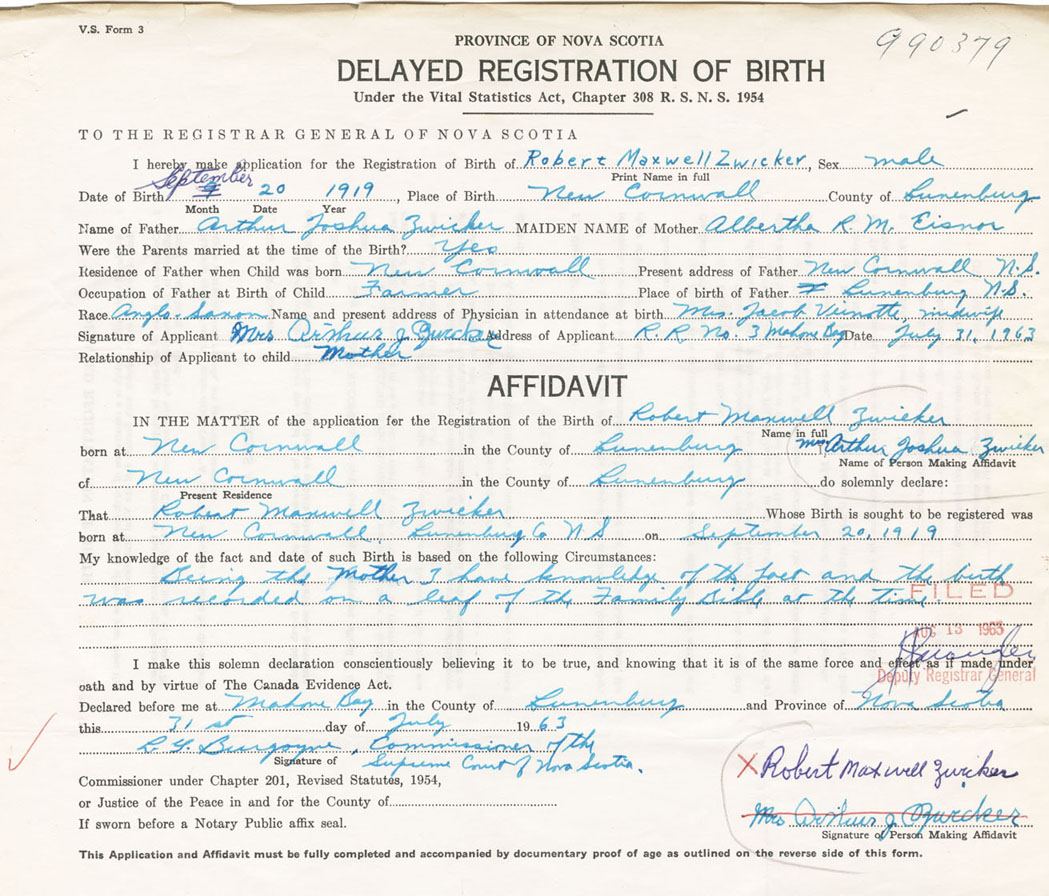 V.S. Form 3
990379
PROVINCE OF NOVA SCOTIA
DELAYED REGISTRATION OF BIRTH
Under the Vital Statistics Act, Chapter 308 R. S. N. S. 1954
TO THE REGISTRAR GENERAL OF NOVA SCOTIA
I hereby make application for the Registration of Birth of Robert Maxwell Zwicker, Sex male
Print Name in full
Date of Birth September 20 1919, Place of Birth New Cornwall County of Lunenburg
Month Date Year
Name of Father Arthur Joshua Zwicker MAIDEN NAME of Mother Albertha R. M. Eisnor
Were the Parents married at the time of the Birth? Yes
Residence of Father when Child was born New Cornwall Present address of Father New Cornwall N.S.
Occupation of Father at Birth of Child Farmer Place of birth of Father Lunenburg N.S.
Race Anglo-Saxon Name and present address of Physician in attendance at birth Mrs. Jacob Veinotte, midwife
Signature of Applicant Mrs Arthur J Zwicker Address of Applicant R.R No. 3 Mahone Bay Date July 31, 1963
Relationship of Applicant to child Mother
AFFIDAVIT
IN THE MATTER of the application for the Registration of Birth of Robert Maxwell Zwicker
Name in full
born at New Cornwall in the County of Lunenburg Mrs Arthur Joshua Zwicker
Name of Person Making Affidavit
of New Cornwall in the County of Lunenburg do solemnly declare:
Present Residence
That Robert Maxwell Zwicker Whose Birth is sought to be registered was
born at New Cornwall, Lunenburg Co N S on September 20, 1919
My knowledge of the fact and date of such Birth is based on the following Circumstances:
Being the Mother I have knowledge of the fact and the birth
was recorded on a leaf of the Family Bible at the time.
FILED
AUG 13 1963
I make this solemn declaration conscientiously believing it to be true, and knowing that it is of the same force and effect as if made under
Deputy Registrar General
oath and by virtue of The Canada Evidence Act.
Declared before me at Mahone Bay in the County of Lunenburg and Province of Nova Scotia
this 31 st day of July 1963
L. G. Burgoyne, Commissioner of the
Signature of Supreme Court of Nova Scotia.
Commissioner under Chapter 201, Revised Statutes, 1954,
X Robert Maxwell Zwicker
or Justice of the Peace in and for the County of
Mrs Arthur J Zwicker
If sworn before a Notary Public affix seal.
Signature of Person Making Affidavit
This Application and Affidavit must be fully completed and accompanied by documentary proof of age as outlined on the reverse side of this form.